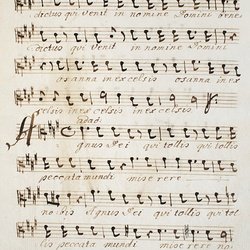 dictus qui venit in nomine Domini bene
dictus qui venit in nomine Domini
osanna in excelsis osanna in ex
celsis in excelsis in excelsis
Agnus Dei qui tollis qui tollis
peccata mundi miserere
nobis Agnus Dei qui tollis qui tol
lis peccata mundi miserere no